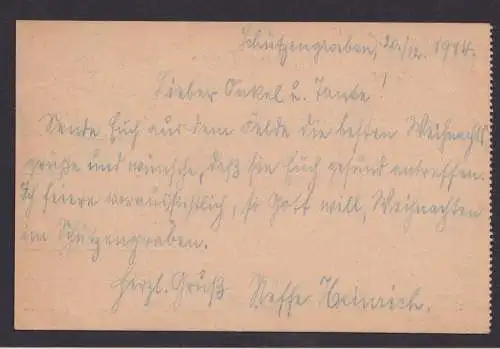 Schützengraben, 20./12. 1914.
Lieber Onkel u. Tante!
Sende Euch aus dem Felde die besten Weihnachts
grüße und wünsche, daß sie Euch gesund antreffen.
Ich feiere voraussichtlich, so Gott will, Weihnachten
im Schützengraben.
Herzl. Gruß Neffe Heinrich.